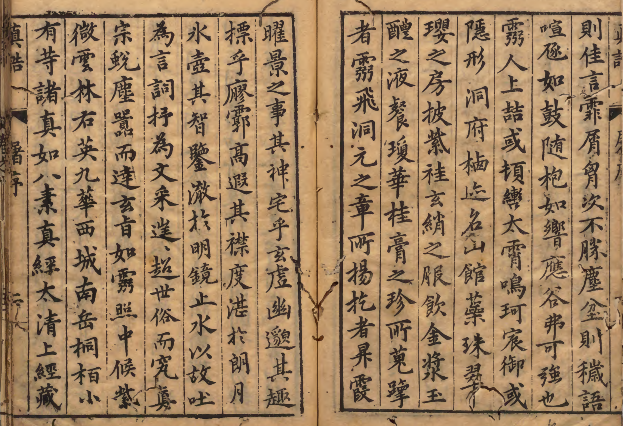 則佳言霏屑胷次不勝塵坌則穢語
喧豗如鼓隨枹如響應谷弗可強也
靈人上喆或頓轡太霄鳴珂宸御或
隱形洞府栖迹名山館蘂珠翠
瓔之房披紫袿玄綃之服飲金漿玉
醴之液餐瓊華桂膏之珍所蒐擇
者靈飛洞元之章所揚扢者昇霞
曜景之事其神宅乎玄虛幽邈其趣
摽乎廖霩高遐其襟度湛於朗月
氷壺其智鑒澈於明鏡止水以故吐
為言詞抒為文采逴超世俗而究真
宗蛻塵囂而達玄旨如靈照中候紫
微雲林石英九華西城南岳桐栢小
有等諸真如八素真經太清上經藏
真誥 舊序